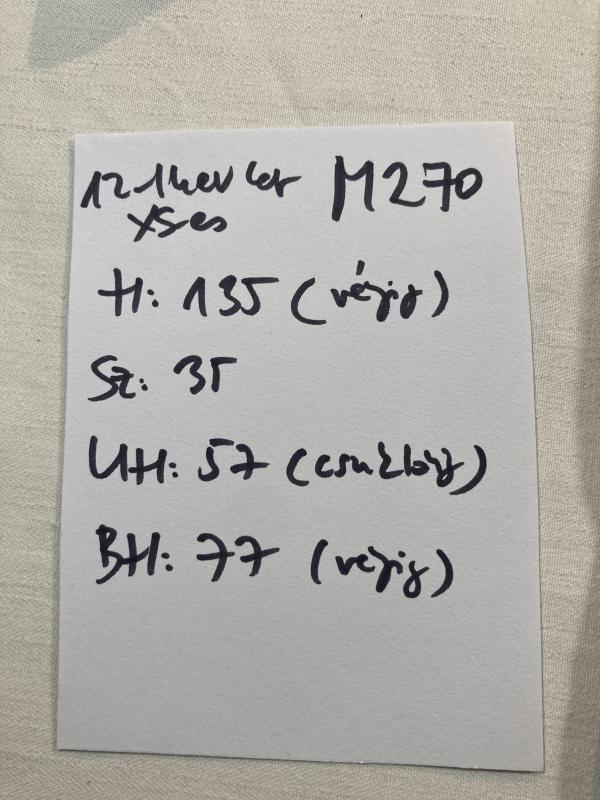 M270
XS-es
H: 135 (végig)
Sz: 35
UH: 57 (csuklóig)
BH: 77 (végig)